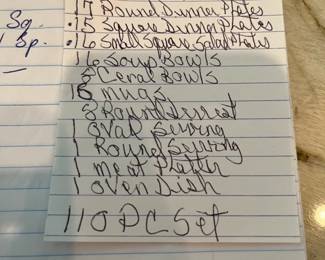 Sq.
1 Sp.
17 Round Dinner Plates
15 Square Dinner Plates
16 Small Square Salad Plates
16 Soup Bowls
8 Cereal Bowls
16 mugs
8 Round Desert
1 Oval Serving
1 Round Serving
1 meat Platter
1 Oven Dish
110 PC Set